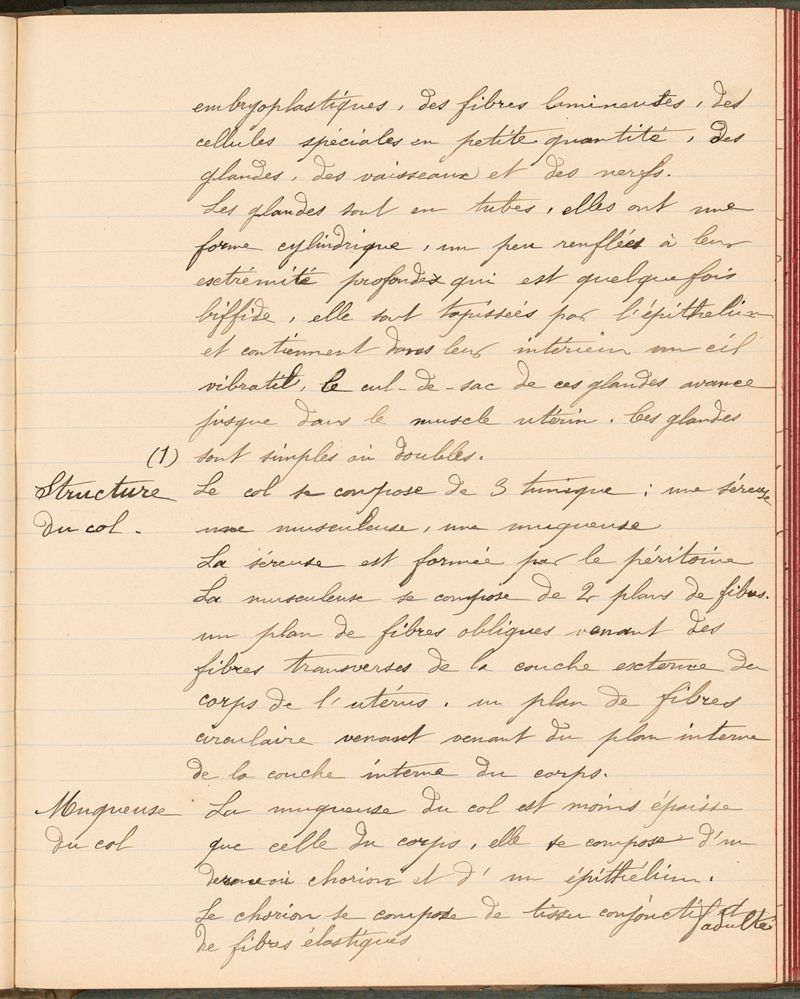 embryoplastiques, des fibres lamineuses, des
cellules spéciales en petite quantité, des
glandes, des vaisseaux et des nerfs.
Les glandes sont en tubes, elles ont une
forme cylindrique, un peu renflées à leur
esctrémité profonde qui est quelque fois
biffide, elle sont tapisseés par l'épithelium
et contiennent dans leur intérieur un cil
vibratil, le cul-de-sac de ces glandes avance
jusque dans le muscle utérin. Ces glandes
(1) sont simples ou doubles.
Structure Le col se compose de 3 tunique; une séreuse
du col. une musculeuse, une muqueuse
La séreuse est formée par le péritoine
La musculeuse se compose de 2 plans de fibres.
un plan de fibres obliques venant des
fibres transverses de la couche esxterne du
corps de l'utérus. un plan de fibres
circulaire venant venant du plan interne
de la couche interne du corps.
Muqueuse La muqueuse du col est moins épaisse
du col que celle du corps, elle se compose d'un
derme ou chorion et d'un épithélium.
Le chorion se compose de tissu conjonctif adulte et
de fibres élastiques